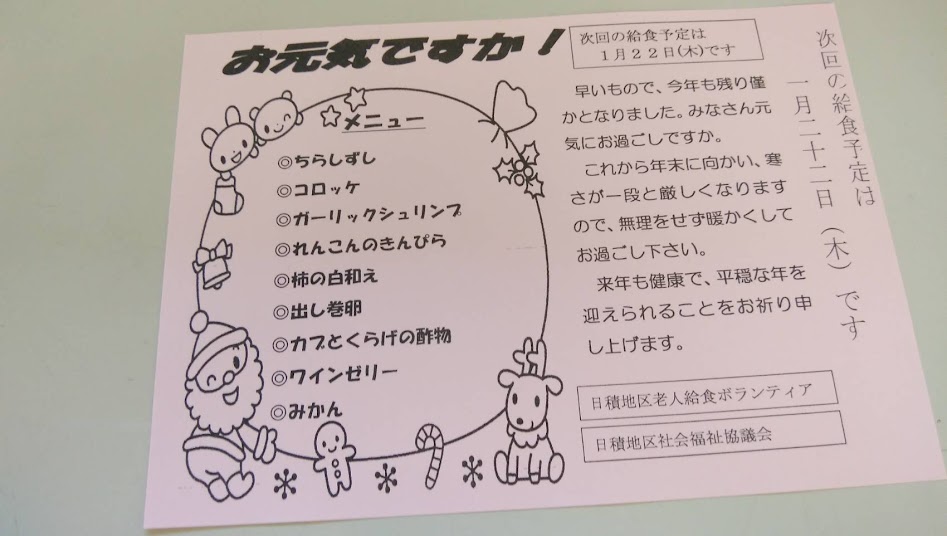 お元気ですか！
メニュー
◎ちらしずし
◎コロッケ
◎ガーリックシュリンプ
◎れんこんのきんぴら
◎柿の白和え
◎出し巻卵
◎カブとくらげの酢物
◎ワインゼリー
◎みかん
次回の給食予定は
１月２２日(木)です
早いもので、今年も残り僅
かとなりました。みなさん元
気にお過ごしですか。
これから年末に向かい、寒
さが一段と厳しくなります
ので、無理をせず暖かくして
お過ごし下さい。
来年も健康で、平穏な年を
迎えられることをお祈り申
し上げます。
日積地区老人給食ボランティア
日積地区社会福祉協議会
次回の給食予定は
一月二十二日（木）です